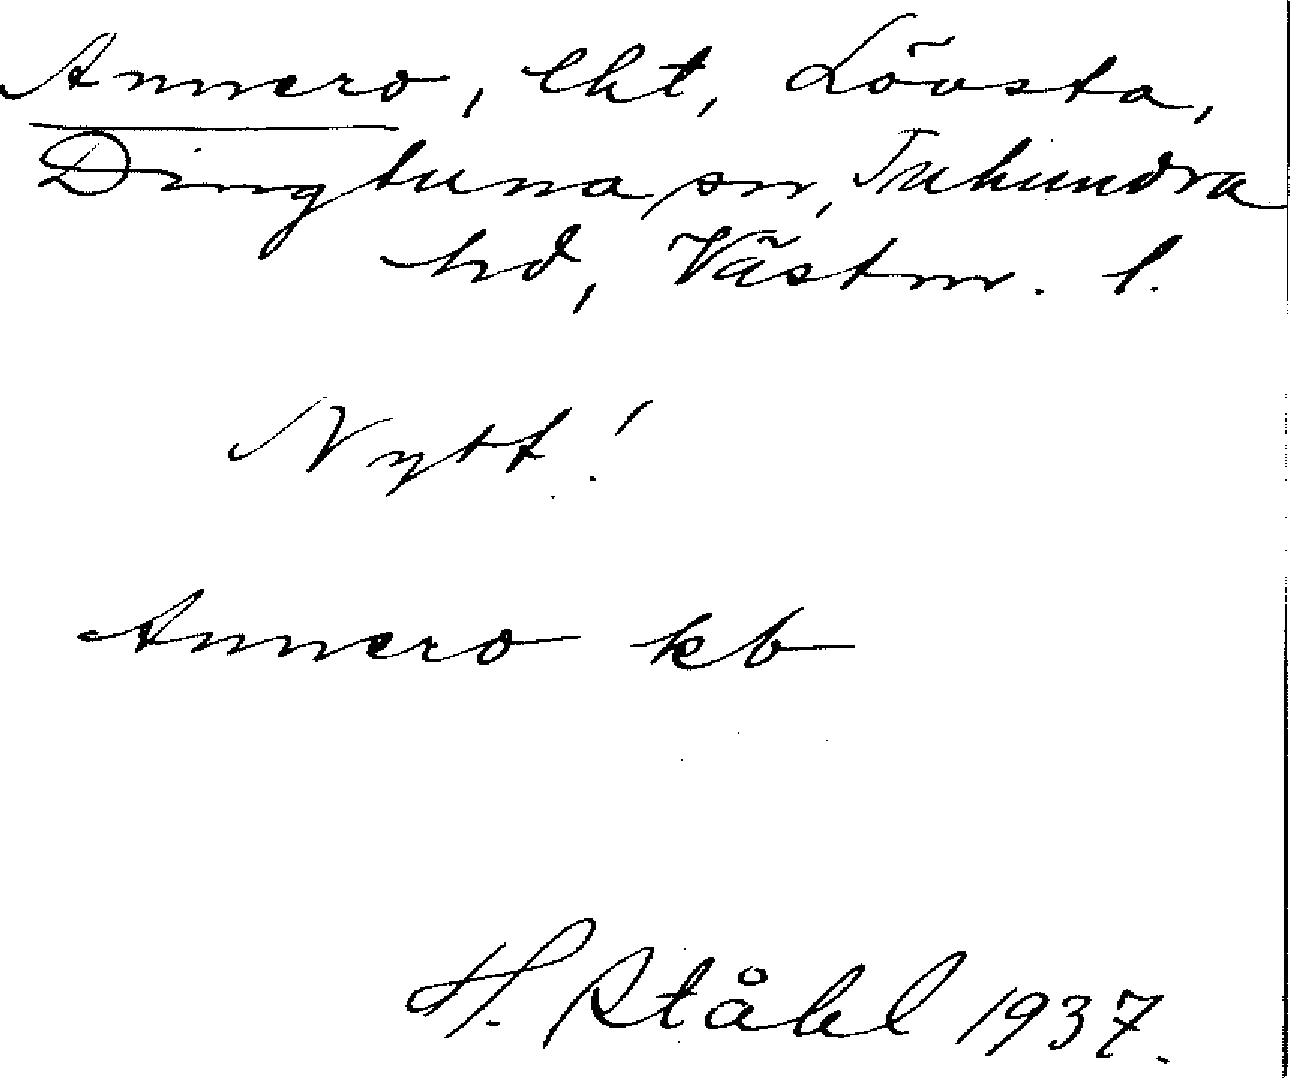 Annero, lht, Lövsta,
Dingtuna sn, Tuhundra
hd, Västm. l.
Nytt!
Annero kb
H. Ståhl 1937.